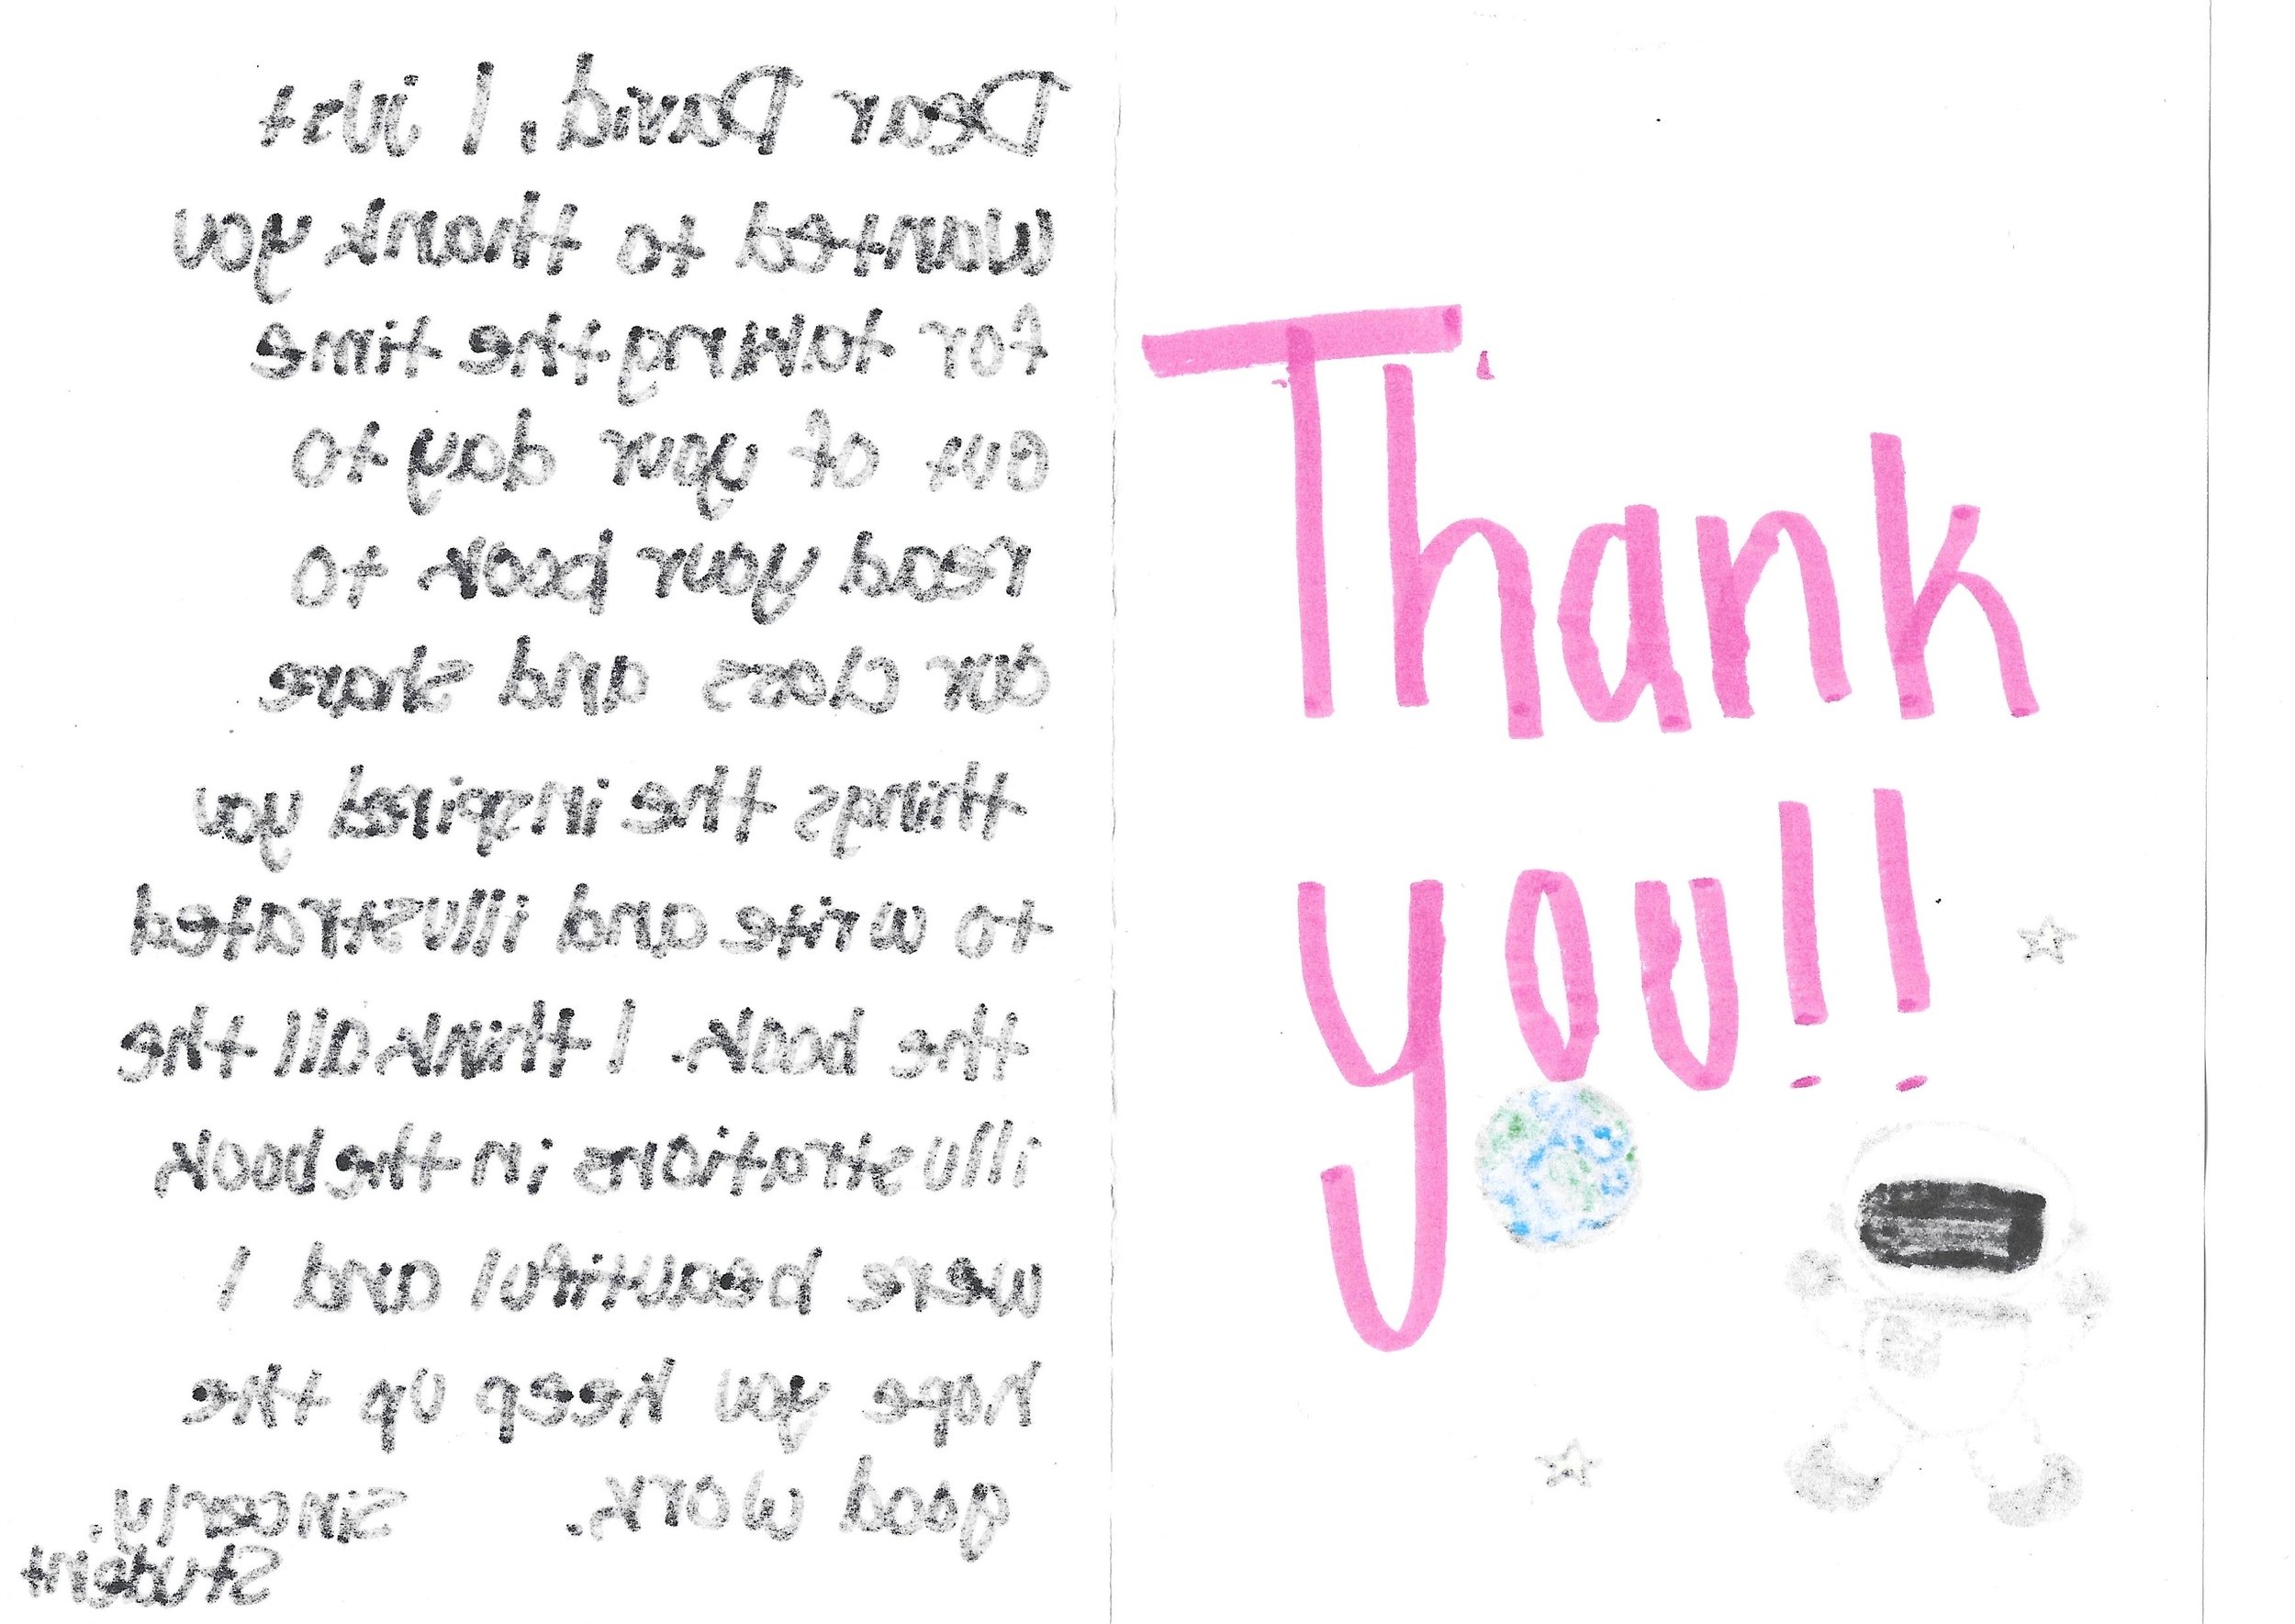 Dear David, I just
wanted to thank you
for takting the time
out of your day to
read your book to
our class and share
things the inspired you
to write and illustrated
the book. I think all the
illustrations in the book
were beautiful and I
hope you keep up the
good work. Sincearly,
Student
Thank
you!!